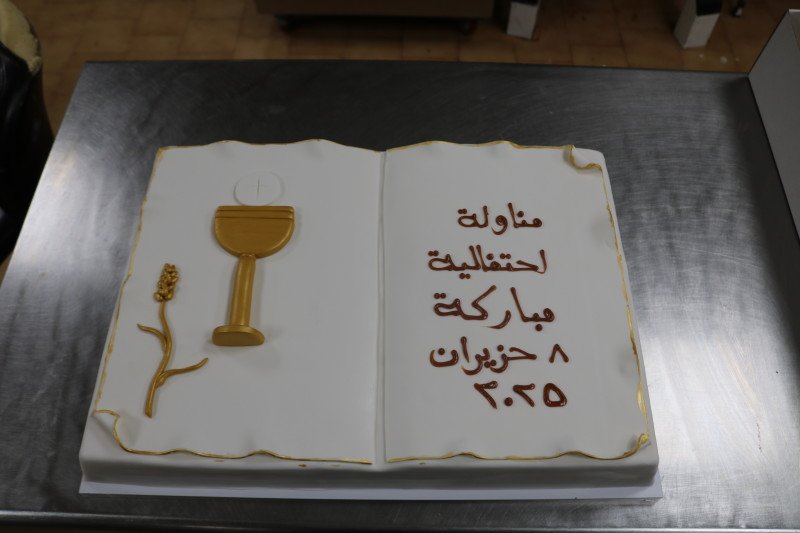 مناولة
احتفالية
مباركة
٨ حزيران
٢٠٢٥